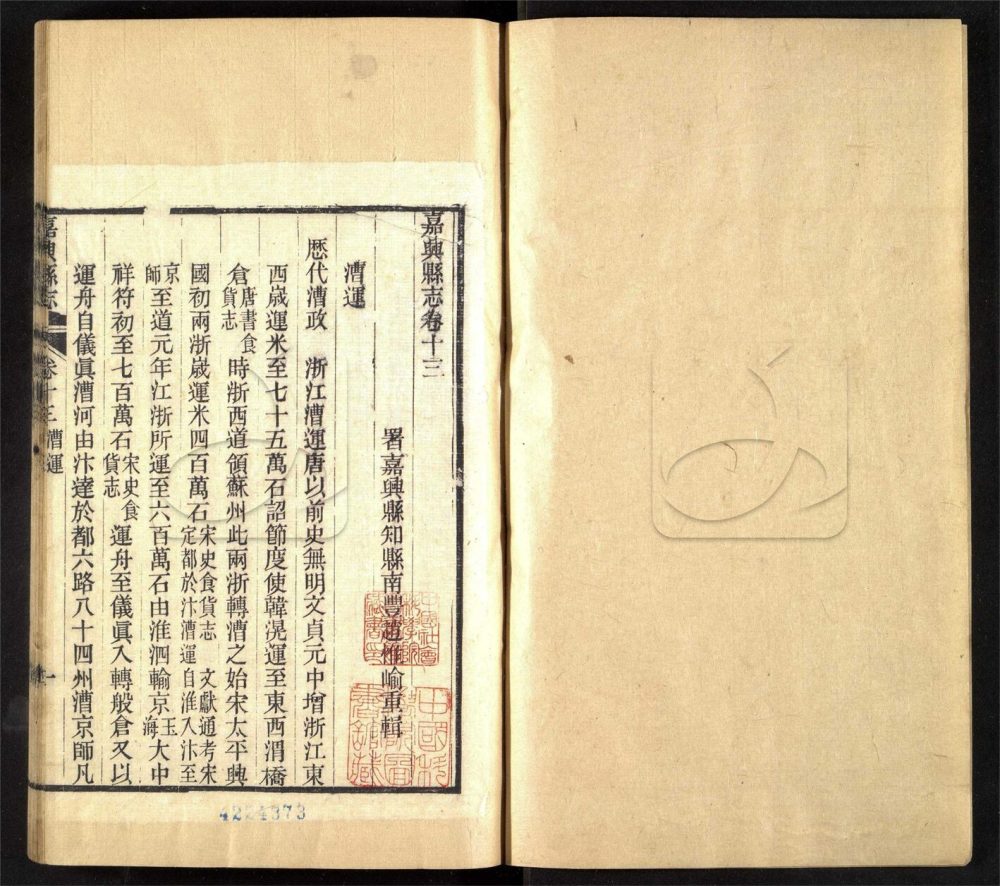 嘉興縣志卷十三
署嘉興縣知縣南豐趙惟崳重輯
漕運
歷代漕政　浙江漕運唐以前史無明文貞元中增浙江東
西歲運米至七十五萬石詔節度使韓滉運至東西渭橋
倉唐書食貨志　時浙西道領蘇州此兩浙轉漕之始宋太平興
國初兩浙歲運米四百萬石宋史食貨志　文獻通考宋定都於汴漕運自淮入汴至
京師至道元年江浙所運至六百萬石由淮泗輸京玉海大中
祥符初至七百萬石宋史食貨志　運舟至儀眞入轉般倉又以
運舟自儀眞漕河由汴達於都六路八十四州漕京師凡
嘉興縣志　卷十三　漕運　一
4224373